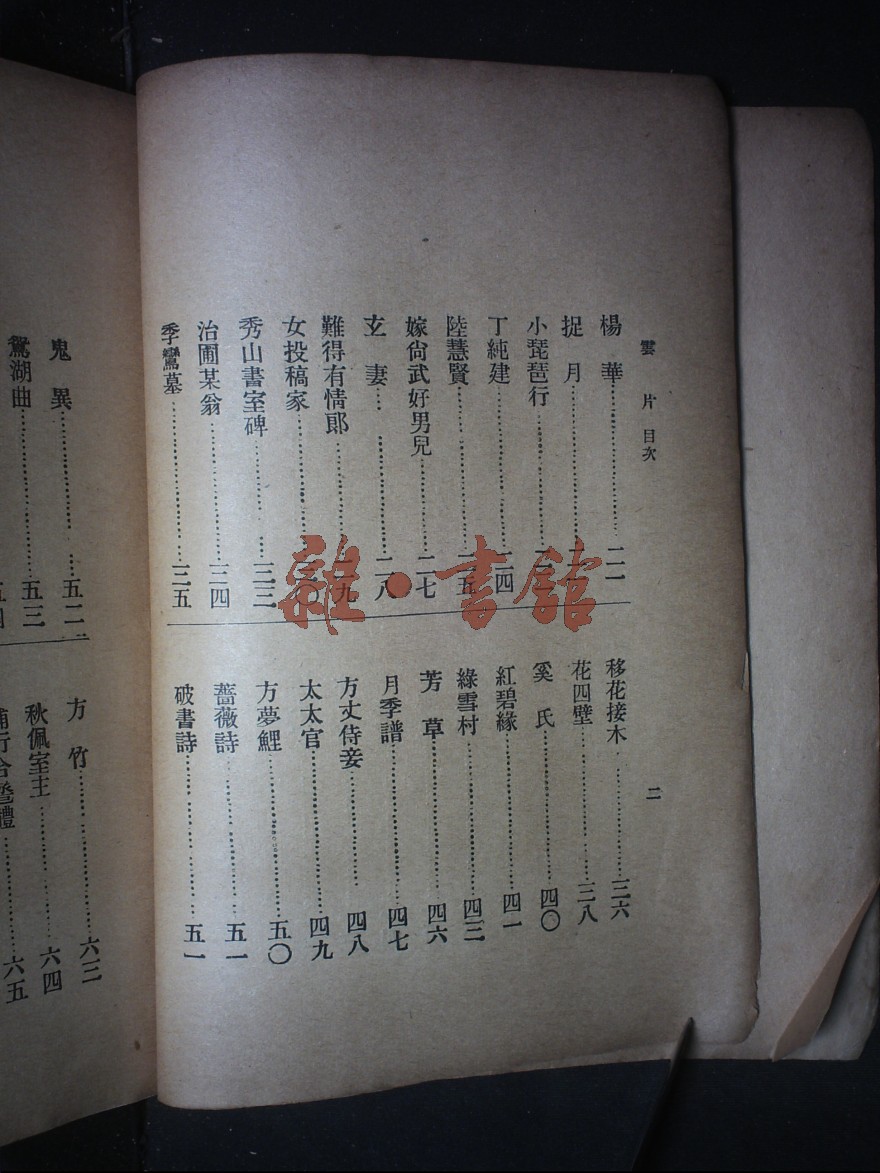 雲片目次
二
楊華……二一
捉月……二
小琵琶行……二
丁純建……二四
陸慧賢……二五
嫁尙武好男兒……二七
玄妻……二八
難得有情郞……二九
女投稿家……三〇
秀山書室碑……三三
治圃某翁……三四
季鸞墓……三五
移花接木……三六
花四壁……三八
奚氏……四〇
紅碧緣……四一
綠雪村……四三
芳草……四六
月季譜……四七
方丈侍妾……四八
太太官……四九
方夢鯉……五〇
薔薇詩……五一
破書詩……五一
鬼異……五二
鴛湖曲……五三
五四
方竹……六三
秋佩室主……六四
行合巹禮……六五
雜·書館